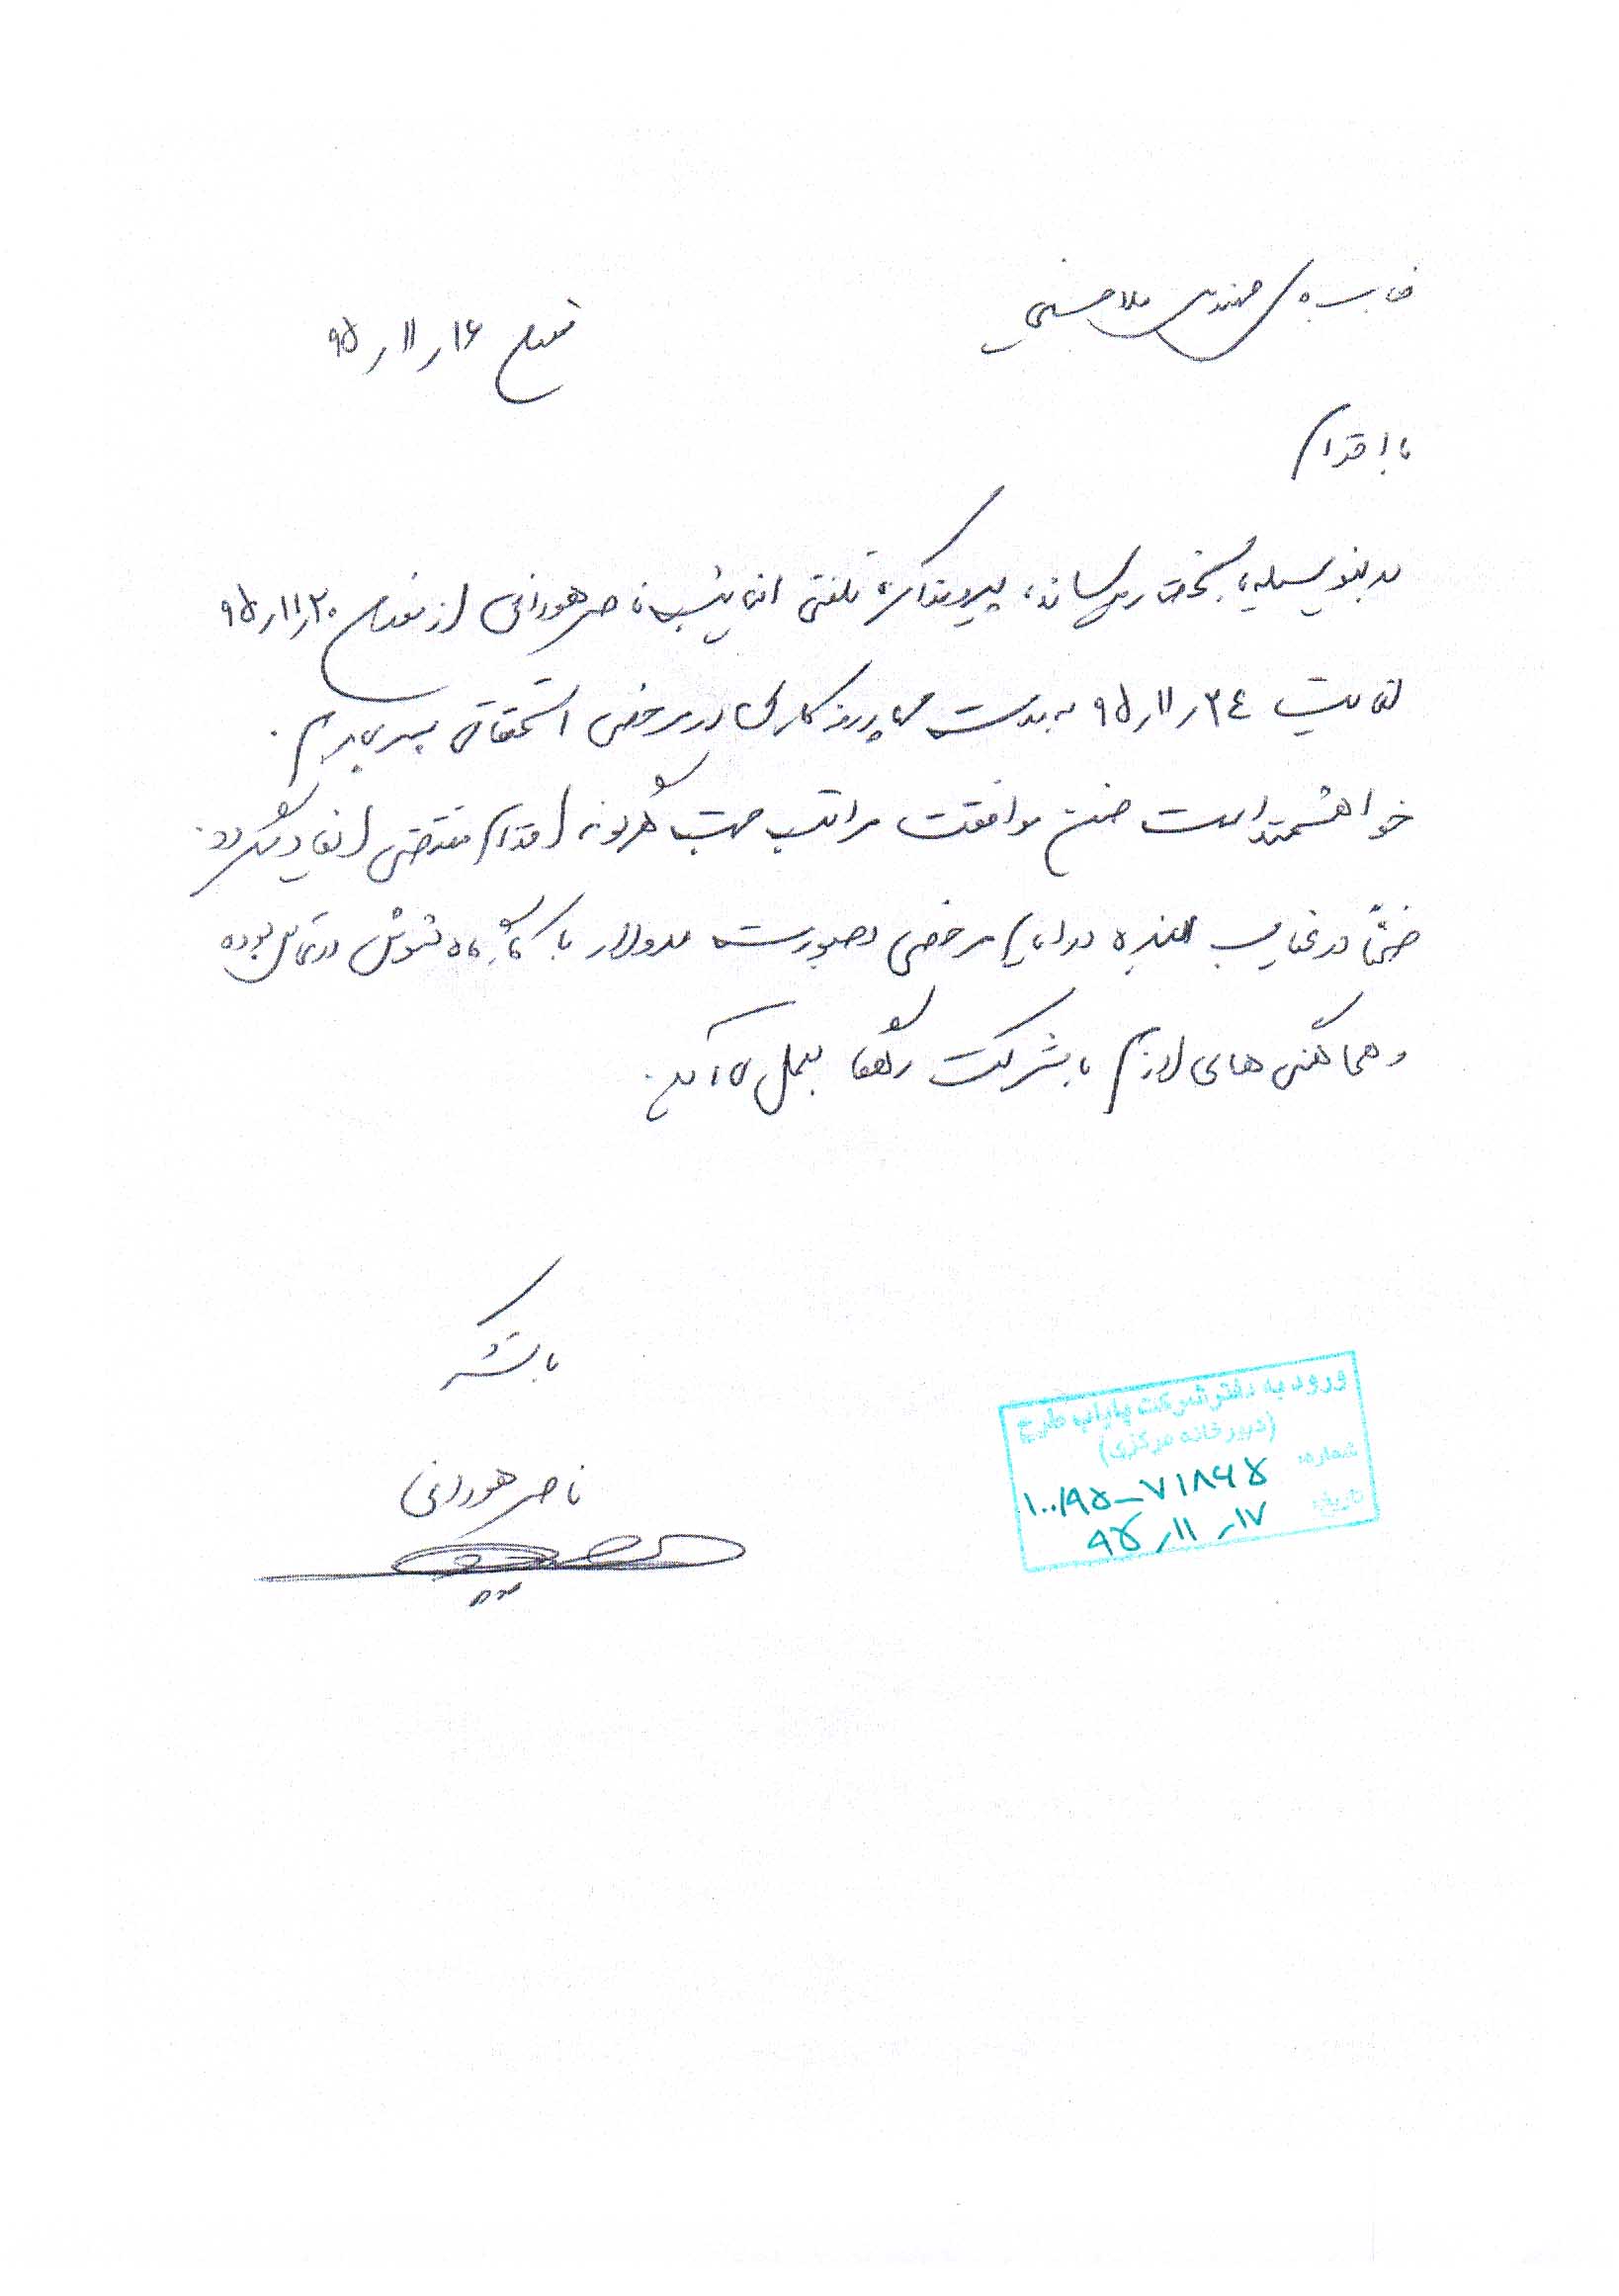 جناب مهندس ملاحسنی
مورخ ۹۵ر۱۱ر۱۶
با احترام
بدینوسیله باستحضار میرساند، پیرو مذاکره تلفنی اینجانب ناصر هورانی از مورخ ۹۵ر۱۱ر۲۰
لغایت ۹۵ر۱۱ر۲۴ به مدت روز کاری در مرخصی استحقاقی بسر میبرم.
خواهشمند است ضمن موافقت مراتب جهت هرگونه اقدام مقتضی ابلاغ گردد.
ضمناً در غیاب اینجانب در ایام مرخصی بصورت مداوم با کارگاه شوش در تماس بوده
و هماهنگی های لازم با شرکت بعمل می آید.
با تشکر
ناصر هورانی
ورود به دفتر شرکت پایاب طرح
(دبیرخانه مرکزی)
شماره: ۱۰۰/۹۵-۷۱۸۶۵
تاریخ: ۹۵ر۱۱ر۱۷